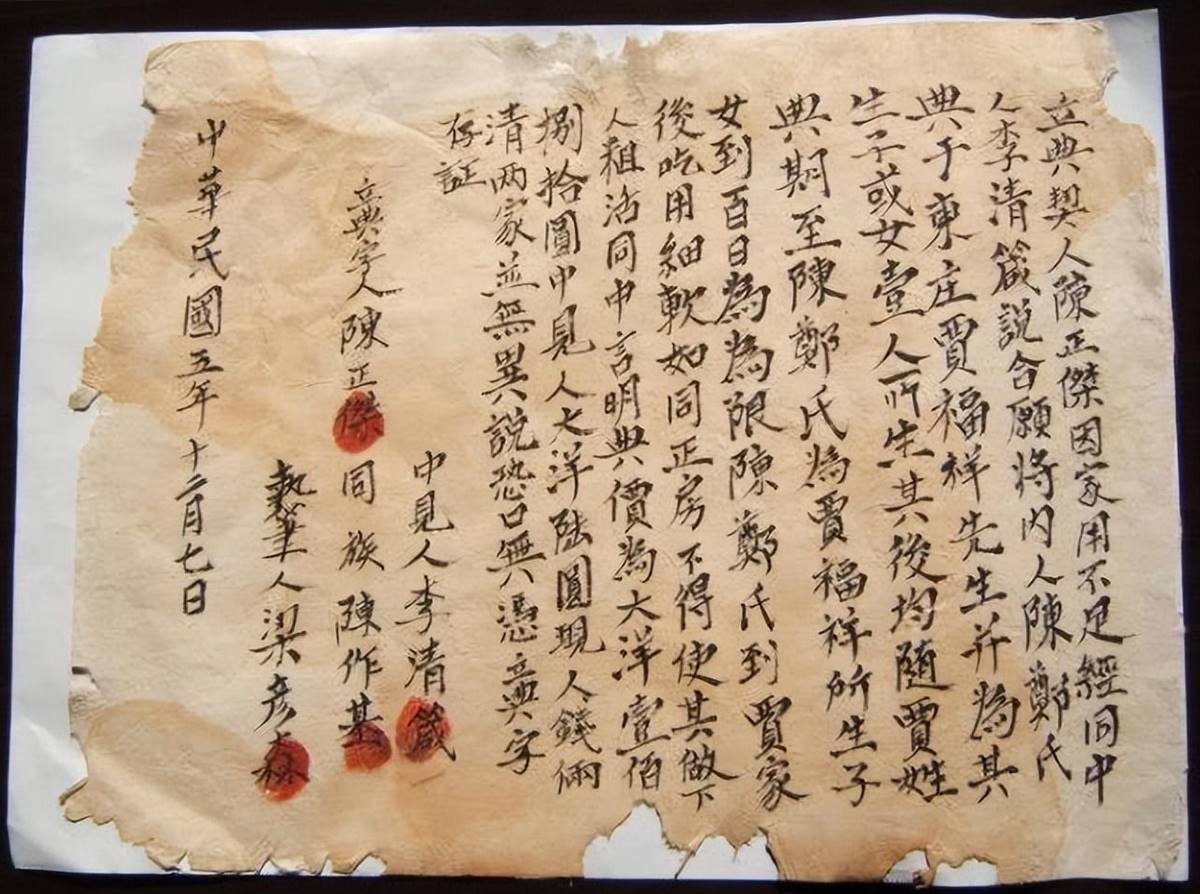 立典契人陳正傑因家用不足經同中
人李清箴説合願將内人陳鄭氏
典于東庄賈福祥先生并為其
生子或女壹人所生其後均隨賈姓
典期至陳鄭氏為賈福祥所生子
女到百日為為限陳鄭氏到賈家
後吃用細軟如同正房不得使其做下
人粗活同中言明典價為大洋壹佰
捌拾圓中見人大洋陸圓現人錢倆
清两家並無異説恐口無憑立典字
存証
中見人李清箴
立典字人陳正傑 同族陳作某
執筆人梁彦森
中華民國五年十二月七日